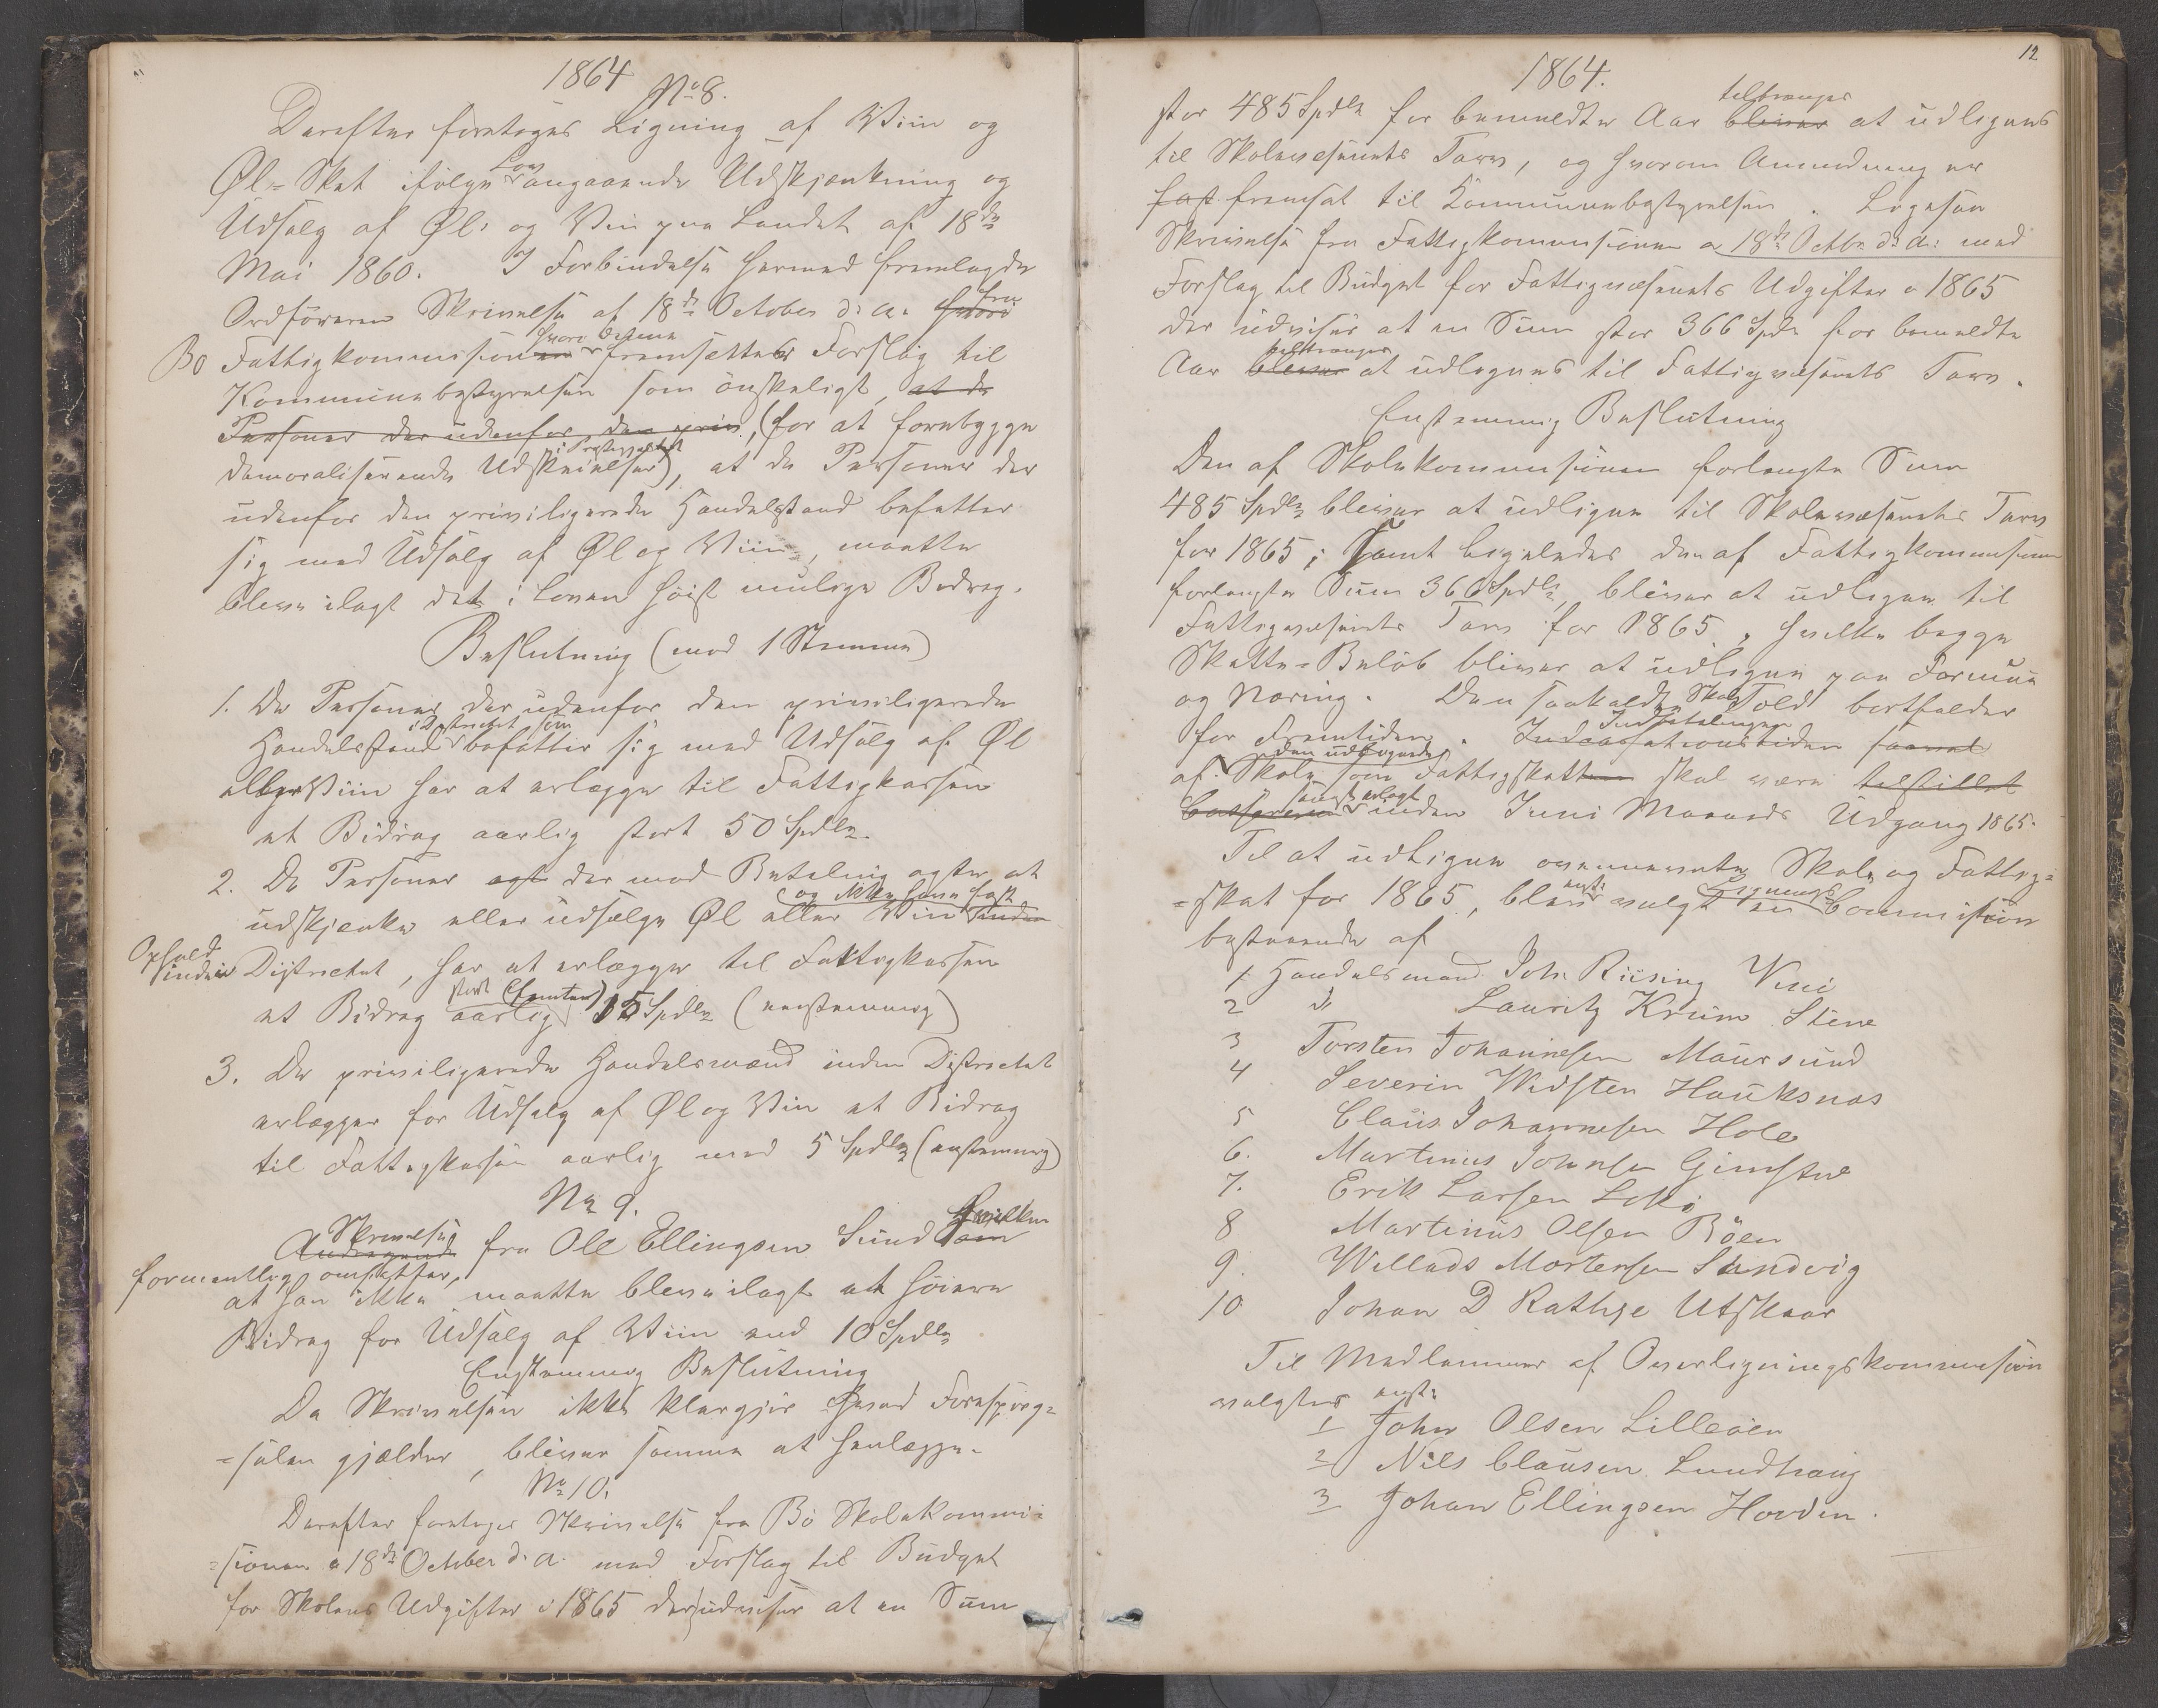 1864
No 8.
Derefter foretoges Ligning af Viin og
Øl-Skat ifølge Lov angaaende Udskjænkning og
Udsalg af Øl og Viin paa Landet af 18de
Mai 1860. I Forbindelse hermed fremlagde
Ordføreren Skrivelse af 18de October d. a. fra
Bø Fattigkommission hvori denne fremsætter Forslag til
Kommunebestyrelsen som ønskeligt, at de
Personer der udenfor den priv, (for at forebygge
demoraliserende Udskeielser i Præstegjeldet), at de Personer der
udenfor den priviligerede Handelsstand befatter
sig med Udsalg af Øl og Viin, maatte
blive ilagt det i Loven høist mulige Bidrag.
Beslutning (mod 1 Stemme)
1. De Personer der udenfor den priviligerede
Handelsstand i Districtet som befatter sig med Udsalg af Øl
eller Viin har at erlægge til Fattigkassen
et Bidrag aarlig stort 50 Spdlr
2. De Personer der mod Betaling agter at
udskjænke eller udsælge Øl eller Viin og ikke have fast
Ophold inden Districtet, har at erlægge til Fattigkassen
et Bidrag aarlig stort (femten) 15 Spdlr (eenstemmig)
3. De priviligerede Handelsmænd inden Districtet
erlægger for Udsalg af Øl og Viin et Bidrag
til Fattigkassen aarlig med 5 Spdlr (enstemmig)
No 9.
Skrivelse fra Ole Ellingsen Sund hvilken
formentlig omhandler,
at han ikke maatte blive ilagt et høiere
Bidrag for Udsalg af Viin end 10 Spdlr
Enstemmig Beslutning
Da Skrivelsen ikke klargjør hvad Forespørg-
-selen gjælder, bliver samme at henlægge.
No 10.
Derefter foretoges Skrivelse fra Bø Skolekommi-
-sionen a 18de October d. a. med Forslag til Budget
for Skolens Udgifter i 1865 der udviser at en Sum
12
1864.
stor 485 Spdlr for bemeldte Aar tiltrænges bliver at udlignes
til Skolevæsenets Tarv, og hvorom Anmodning er
fremsat til Kommunebestyrelsen. Ligesaa
Skrivelse fra Fattigkommisionen a 18de Octbr d. a. med
Forslag til Budget for Fattigvæsenets Udgifter i 1865
der udviser at en Sum stor 366 Spdr for bemeldte
Aar tiltrænges bliver at udlignes til Fattigvæsenets Tarv.
Enstemmig Beslutning
Den af Skolekommisionen forlangte Sum
485 Spdlr bliver at udligne til Skolevæsenets Tarv
for 1865; samt ligeledes den af Fattigkommisionen
forlangte Sum 366 Spdlr, bliver at udligne til
Fattigvæsenets Tarv for 1865, hvilke begge
Skatte-Beløb bliver at udligne paa Formue
og Næring. Den saakaldte Skole Told bortfalder
for Fremtiden. Indbetalingen
af den udlignede Skole som Fattigskat skal være
erlagt inden Juni Maaneds Udgang 1865.
Til at udligne ovennævnte Skole og Fattig-
-skat for 1865, blev enst. valgt en Lignings Commision
bestaaende af
1. Handelsmand Joh. Riising Vini
2 d Lauritz Krum Stene
3 Torsten Johannesen Maursund
4 Severin Widsten Hauksnæs
5 Claus Johannesen Hole
6. Martinus Johnsen Gimstve
7. Erik Larsen
8 Martinus Olsen Røen
9. Willads Mortensen Sandvig
10 Johan D Rathje Utskaar
Til Medlemmer af Overligningskommision
valgtes enst.
1 John Olsen Lilleøen
2 Nils Clausen Lundhaug
3 Johan Ellingsen Hovden.